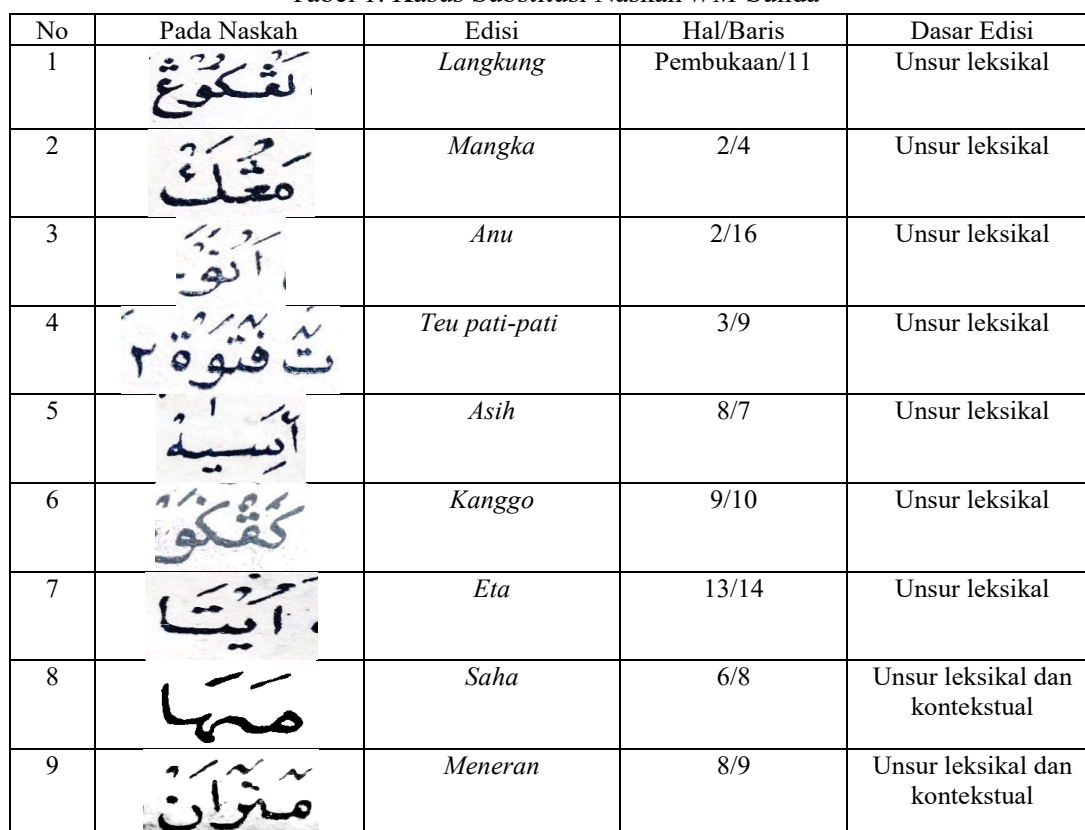 Tabel 1. Kasus Substitusi Naskah WM Sunda
No Pada Naskah Edisi Hal/Baris Dasar Edisi
1 Langkung Pembukaan/11 Unsur leksikal
2 Mangka 2/4 Unsur leksikal
3 Anu 2/16 Unsur leksikal
4 Teu pati-pati 3/9 Unsur leksikal
5 Asih 8/7 Unsur leksikal
6 Kanggo 9/10 Unsur leksikal
7 Eta 13/14 Unsur leksikal
8 مَهَا Saha 6/8 Unsur leksikal dan
kontekstual
9 Meneran 8/9 Unsur leksikal dan
kontekstual